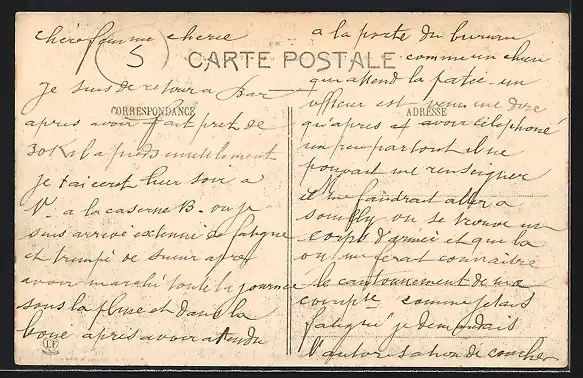 chère femme chérie
5
CARTE POSTALE
CORRESPONDANCE
ADRESSE
Je suis de retour a Bar
apres avoir fait pret de
30 K a pieds inutilement
Je t'ai ecrit hier soir a
V. a la caserne B. ou je
suis arrivé extenué de fatigue
et trempé de sueur apres
avoir marché toute la journee
sous la pluie et dans la
boue apres avoir attendu
a la porte du bureau
comme un chien
qui attend la patée un
officier est venu me dire
qu'apres avoir telephoné
un peu partout il ne
pouvait me renseigner
il me faudrait aller a
ou se trouve un
corps d'armée et que la
on me ferait connaitre
le cantonnement de ma
compie comme j'etais
fatigué je demandais
l'autorisation de coucher